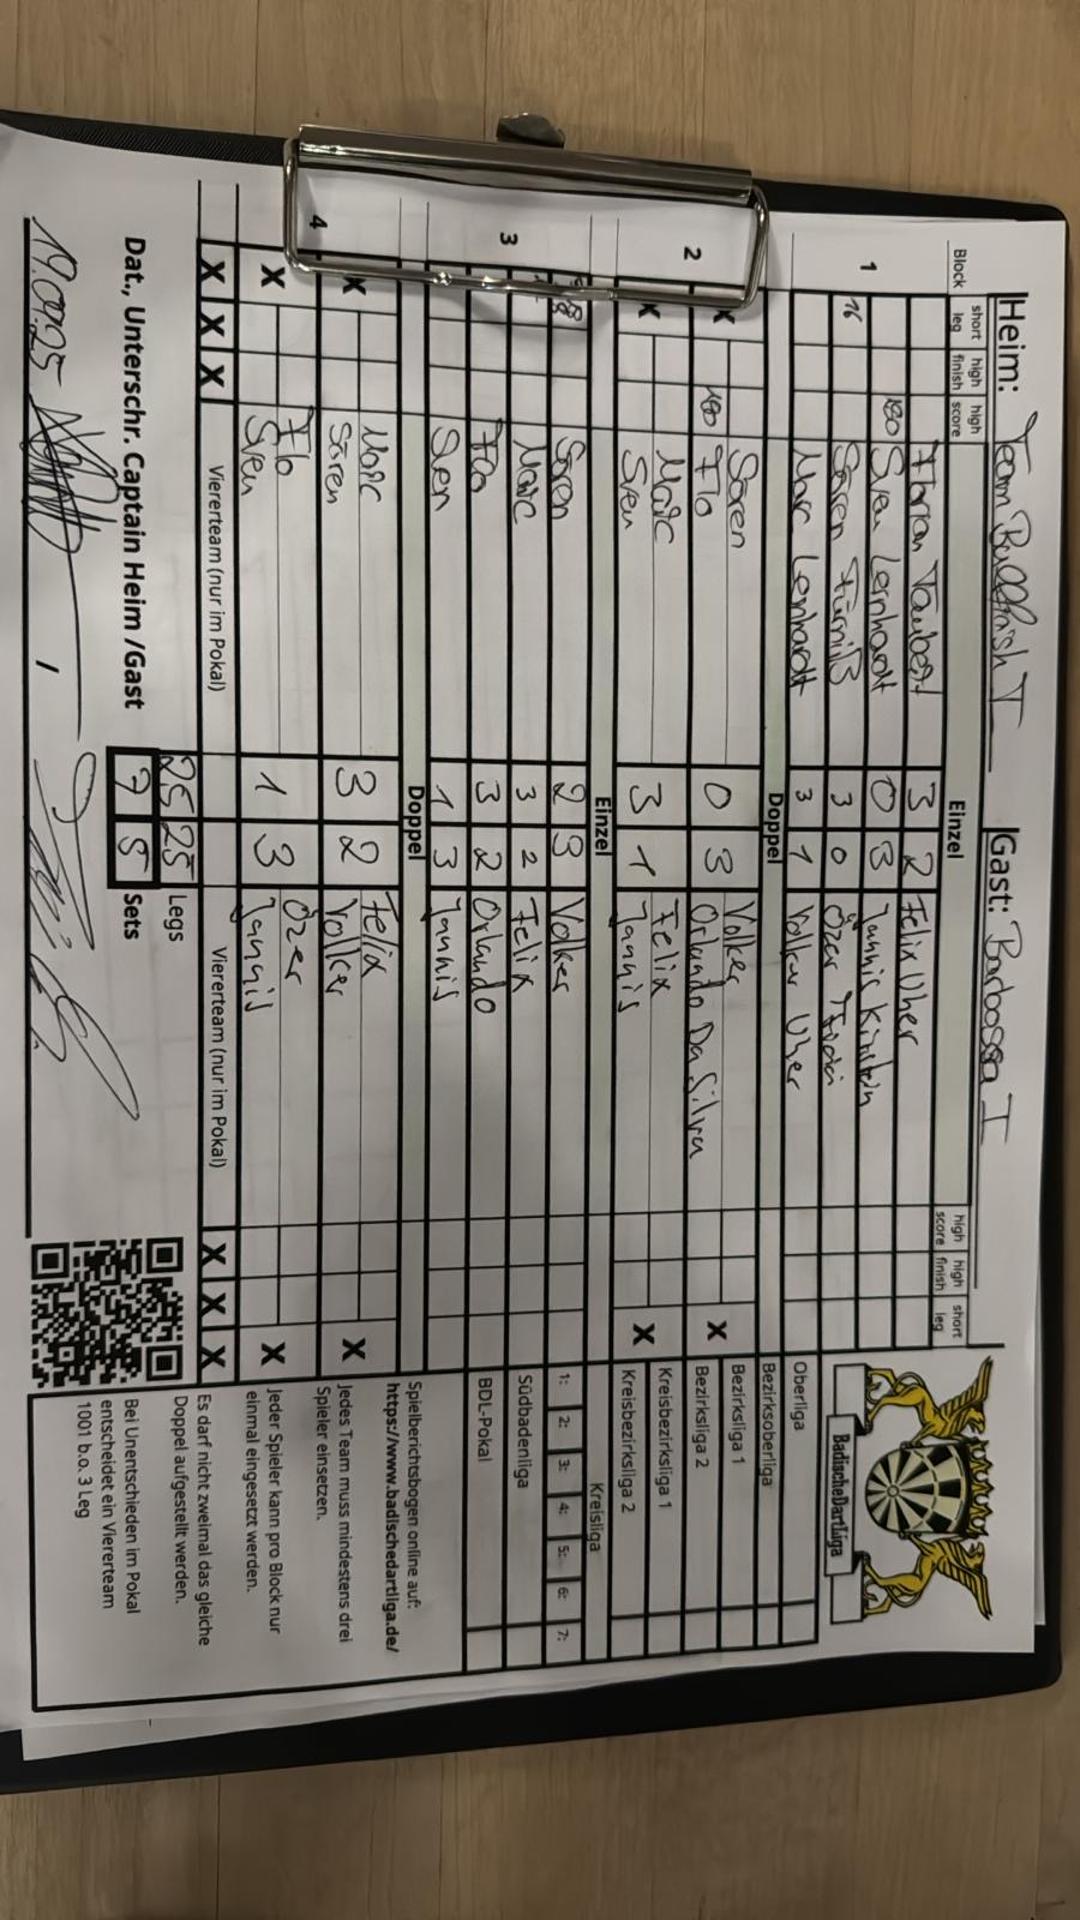 Heim: Team Bullfinish I Gast: Barbossa I
Block short leg high finish high score Einzel high score high finish short leg
1 Florian Taubert 3 2 Felix Uher
180 Sven Lernhardt 0 3 Jannis
16 Sören Fürniß 3 0 Özer
Marc Lernhardt 3 1 Volker Uher
Doppel
2 X Sören 0 3 Volker X
180 Flo Orlando Da Silva
X Marc 3 1 Felix X
Sven Jannis
Einzel
3 18 Sören 2 3 Volker
Marc 3 2 Felix
Flo 3 2 Orlando
Sven 1 3 Jannis
Doppel
4 X Marc 3 2 Felix X
Sören Volker
X Flo 1 3 Özer X
Sven Jannis
X X X Vierterteam (nur im Pokal) Vierterteam (nur im Pokal) X X X
25 25 Legs
Dat., Unterschr. Captain Heim /Gast 7 5 Sets
BadischeDartLiga
Oberliga
Bezirksoberliga
Bezirksliga 1
Bezirksliga 2
Kreisbezirksliga 1
Kreisbezirksliga 2
Kreisliga
1: 2: 3: 4: 5: 6: 7:
Südbadenliga
BDL-Pokal
Spielberichtsbogen online auf:
https://www.badischedartliga.de/
Jedes Team muss mindestens drei
Spieler einsetzen.
Jeder Spieler kann pro Block nur
einmal eingesetzt werden.
Es darf nicht zweimal das gleiche
Doppel aufgestellt werden.
Bei Unentschieden im Pokal
entscheidet ein Viererteam
1001 b.o. 3 Leg